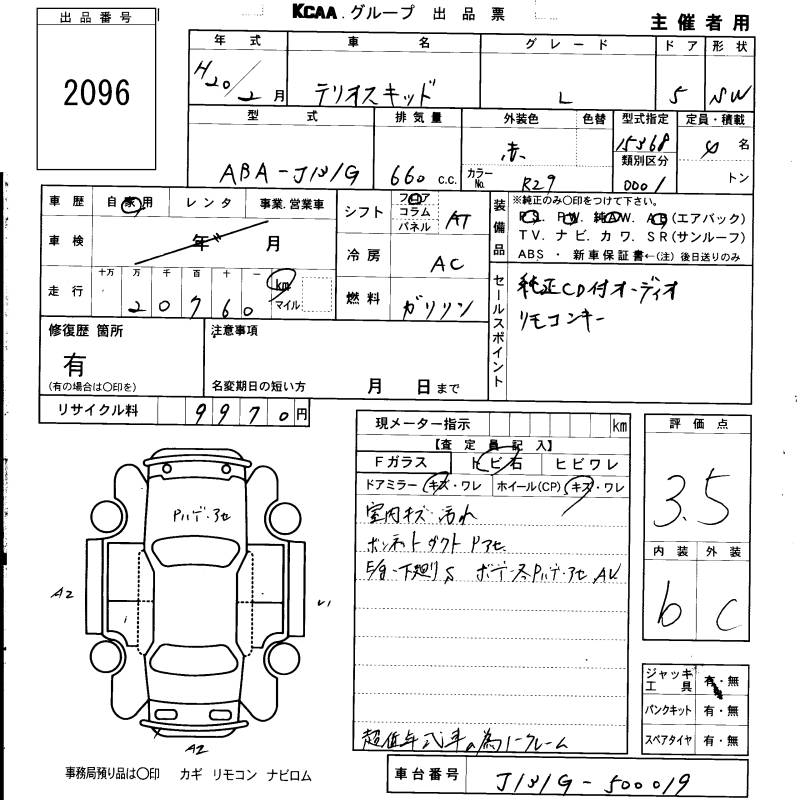 KCAA グループ 出品票
主催者用
出品番号
2096
年式 車名 グレード ドア 形状
H20/2月 テリオスキッド L 5 SW
型式 排気量 外装色 色替 型式指定 定員・積載
ABA-J131G 660 c.c. 赤 15368 4名
カラーNo. R29 類別区分 0001 トン
車歴 自家用 レンタ 事業.営業車
車検 年 月
走行 十万 万 千 百 十 一 km マイル
20760
シフト フロア コラム パネル AT
冷房 AC
燃料 ガソリン
装備品 ※純正のみ〇印をつけて下さい。
PS. PW. 純AW. AB(エアバック)
TV. ナビ. カワ. SR(サンルーフ)
ABS ・ 新車保証書←(注)後日送りのみ
セールスポイント
純正CD付オーディオ
リモコンキー
修復歴 箇所
有
(有の場合は〇印を)
注意事項
名変期日の短い方 月 日まで
リサイクル料 9970円
現メーター指示 km
【査定員記入】
Fガラス トビ石 ヒビワレ
ドアミラー キズ・ワレ ホイール(CP) キズ・ワレ
室内キズ 汚れ
ボンネットダクトPアセ
下廻りS
超低年式車の為ノークレーム
評価点
3.5
内装 外装
b C
ジャッキ工具 有・無
パンクキット 有・無
スペアタイヤ 有・無
A2
A2
事務局預り品は〇印 カギ リモコン ナビロム
車台番号 J131G-500019